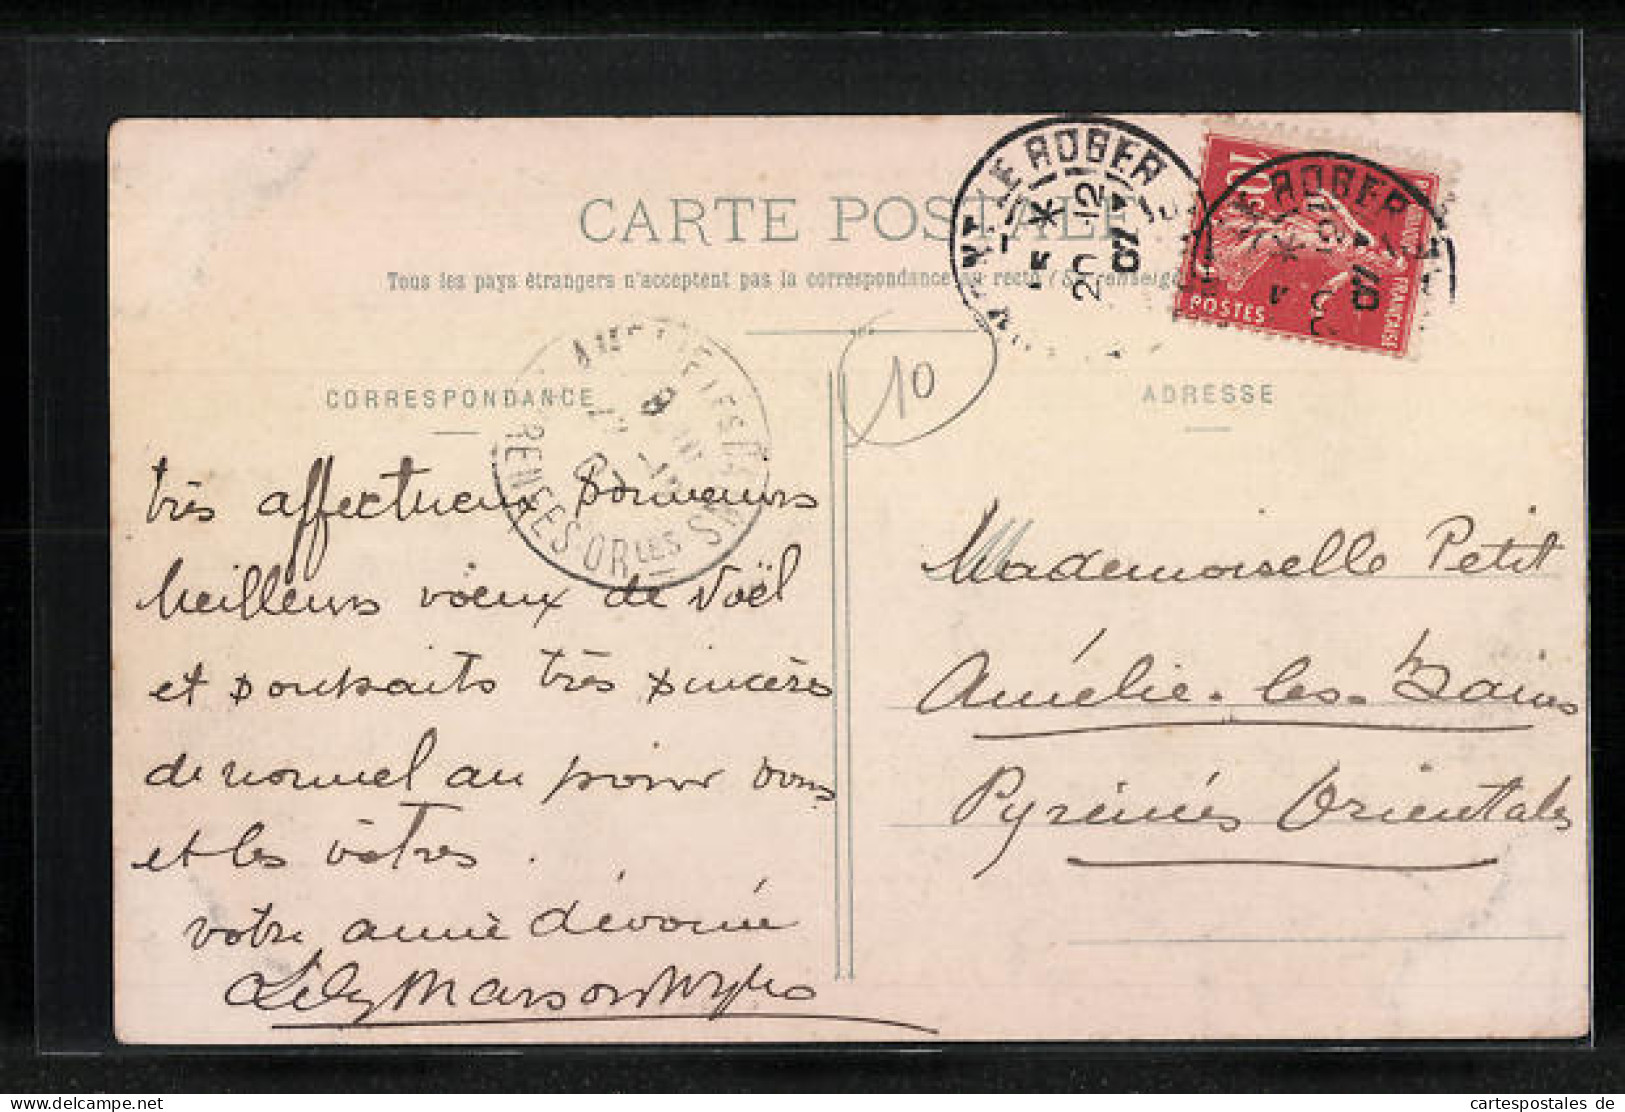 CARTE POSTALE
Tous les pays étrangers n'acceptent pas la correspondance au recto (Se renseigner
CORRESPONDANCE
ADRESSE
très affectueux souvenirs
Meilleurs voeux de Noël
et souhaits très sincères
de nouvel an pour vous
et les vôtres.
votre amie dévouée
Lily
Mademoiselle Petit
Amélie-les-Bains
Pyrénées Orientales
10
LE ROBER
* 20 -12 07
ROBER
* 07
10c
POSTES
FRANÇAISE
AMELIE LES BAINS
LES
cartespostales de